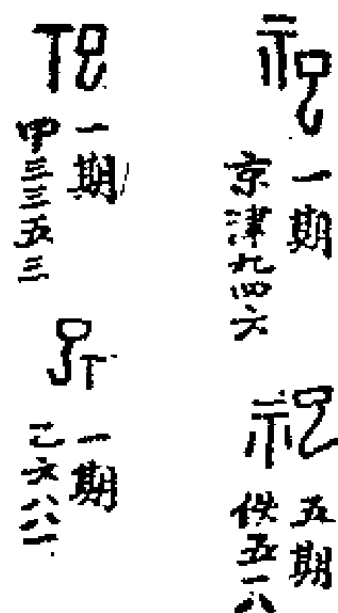 一期
京津九四六
五期
佚五一八
一期
甲三三五三
一期
乙六八八一